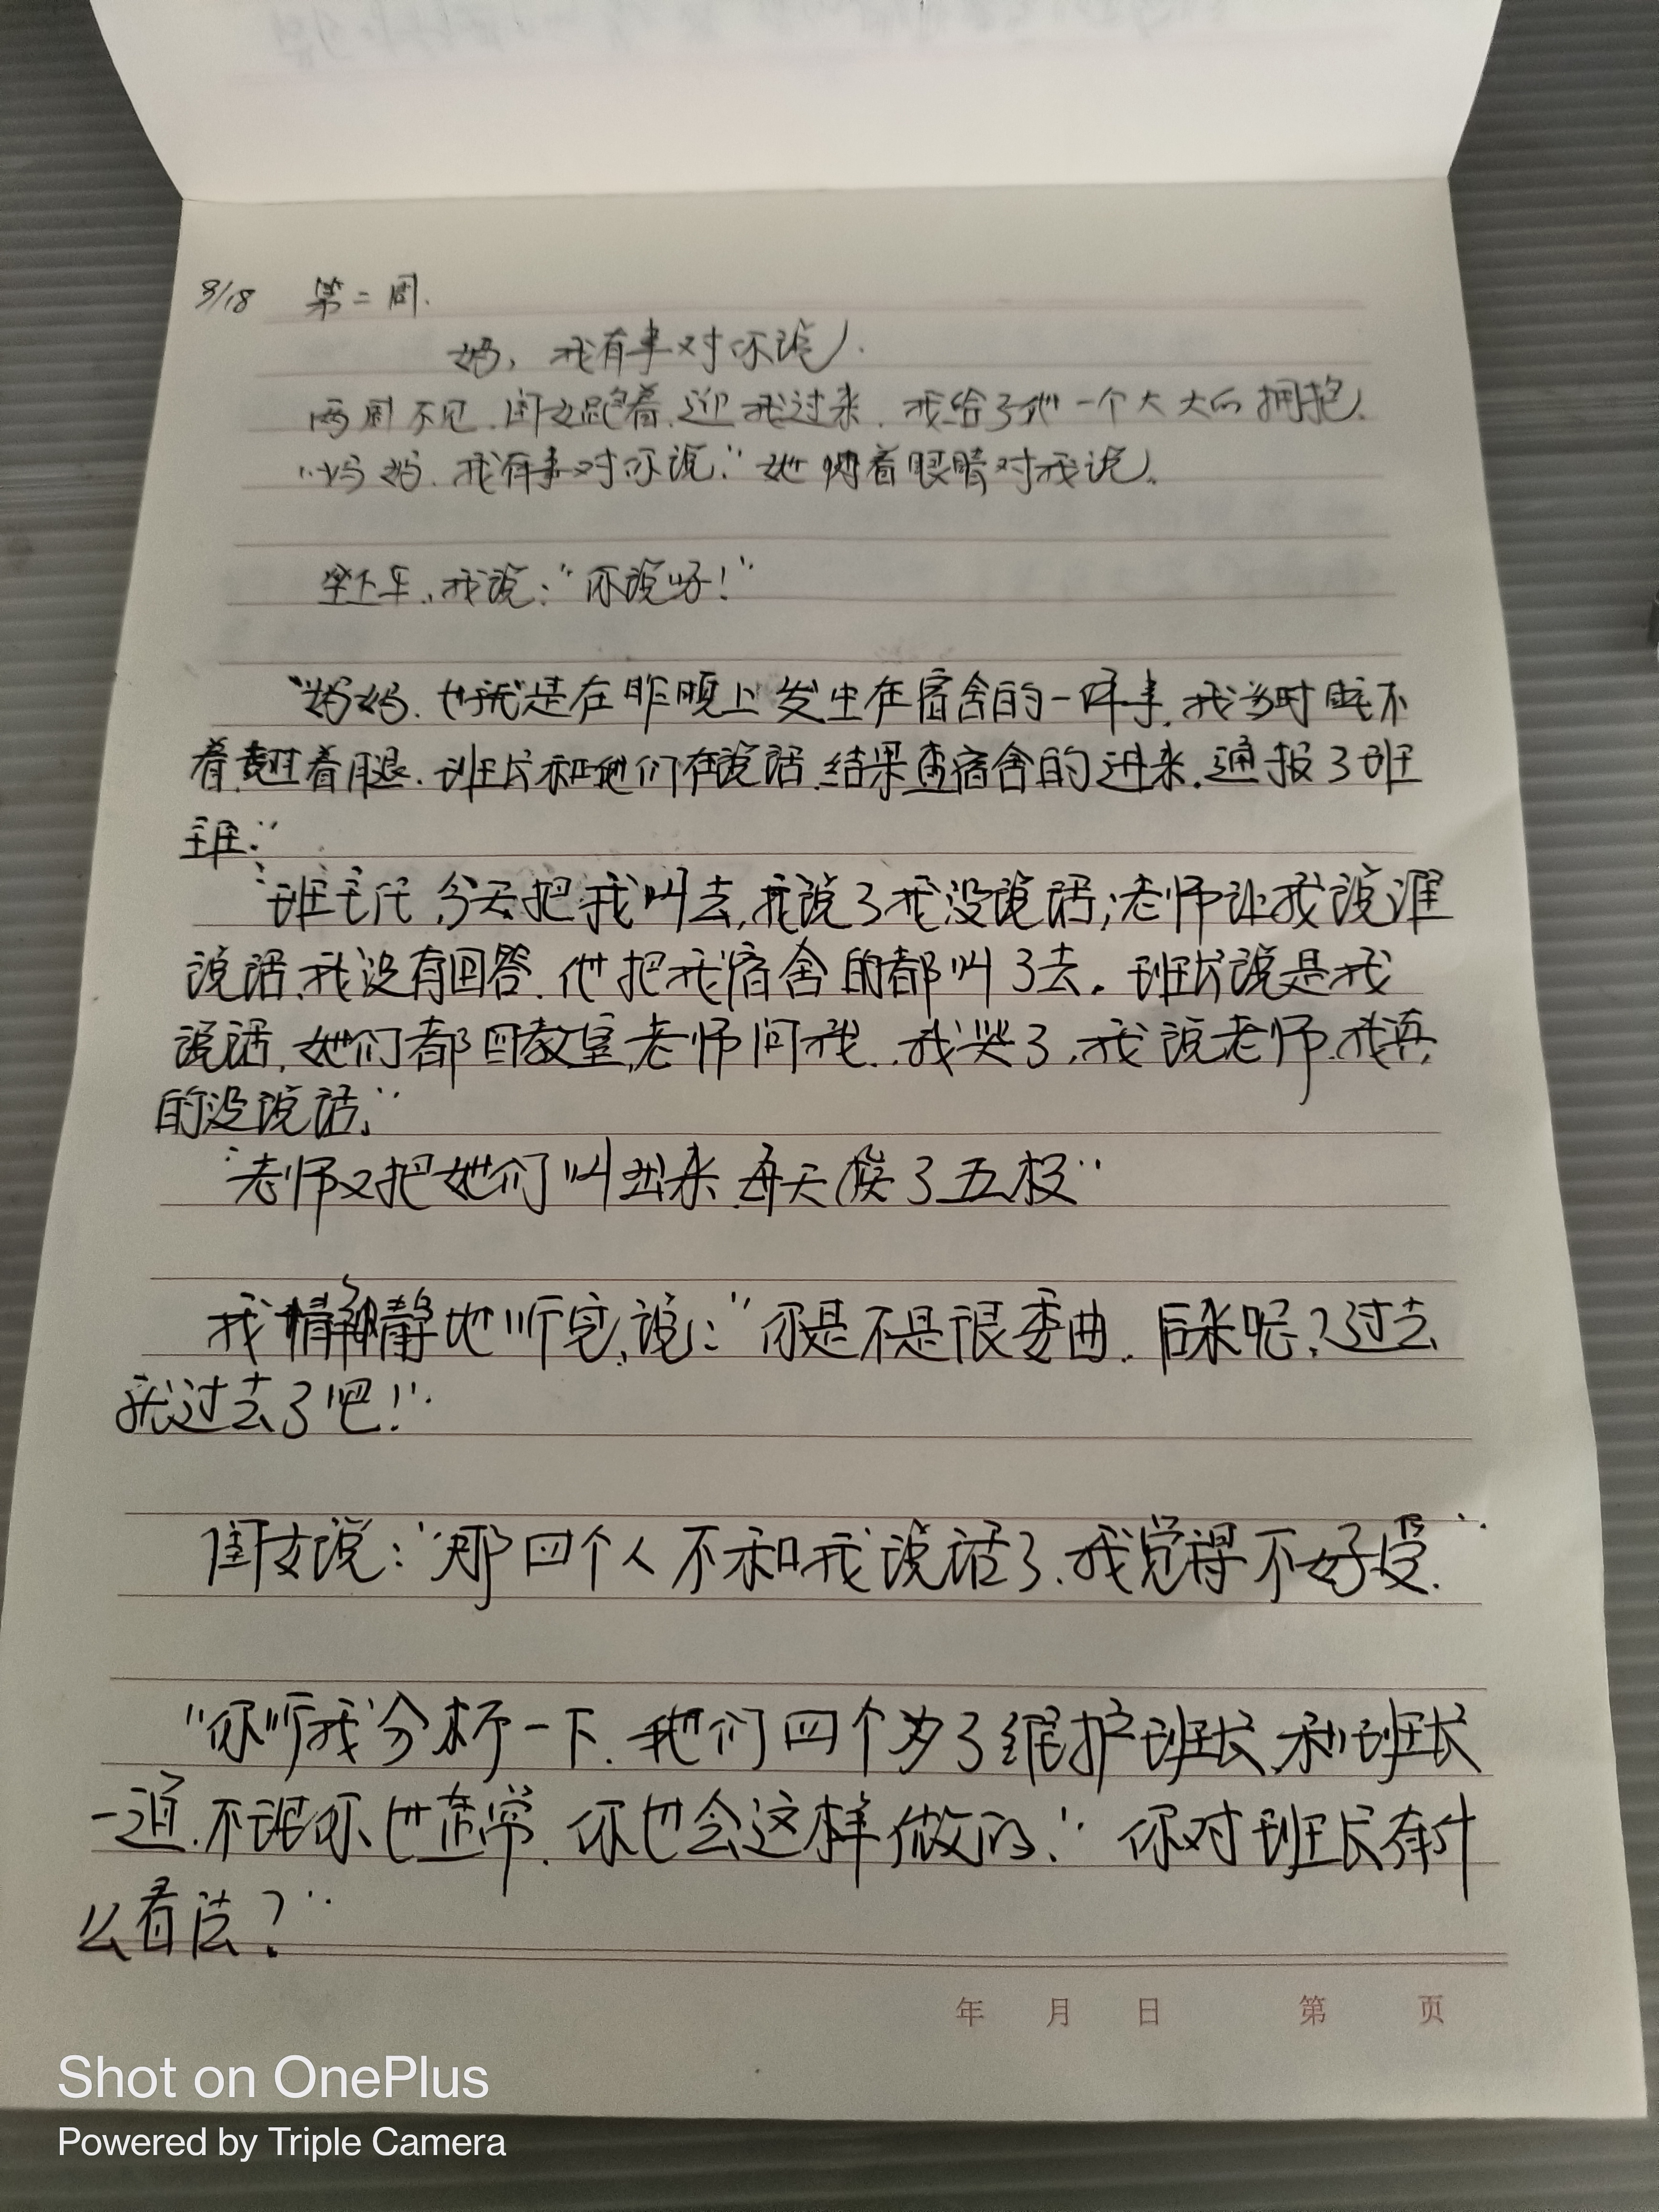 9/18 第二周.
妈,我有事对你说.
两周不见.闺女跑着.迎我过来.我给了她一个大大的拥抱.
"妈妈.我有事对你说."她 着眼睛对我说.
坐下车,我说:"你说呀!"
"妈妈.也就是在昨晚上发生在宿舍的一件事.我当时睡不
着.翘着腿.班长和她们在说话.结果查宿舍的进来.通报了班
主任."
"班主任,今天把我叫去,我说了我没说话;老师让我说谁
说话,我没有回答.他把我宿舍的都叫了去.班长说是我
说话,她们都回教室,老师问我..我哭了,我说老师.我真
的没说话."
"老师又把她们叫出来.每天 了五板"
我 静静地听完,说:"你是不是很委曲.后来呢?过去
就过去了吧!"
闺女说:"那四个人不和我说话了.我觉得不好受."
"你听我分析一下.她们四个为了维护班长.和班长
一道.不理你也正常.你也会这样做的."你对班长有什
么看法?"
年 月 日 第 页
Shot on OnePlus
Powered by Triple Camera